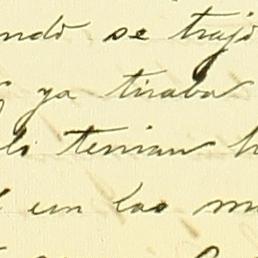 ndo se trajo
ya tiraba
lo tenian
en las